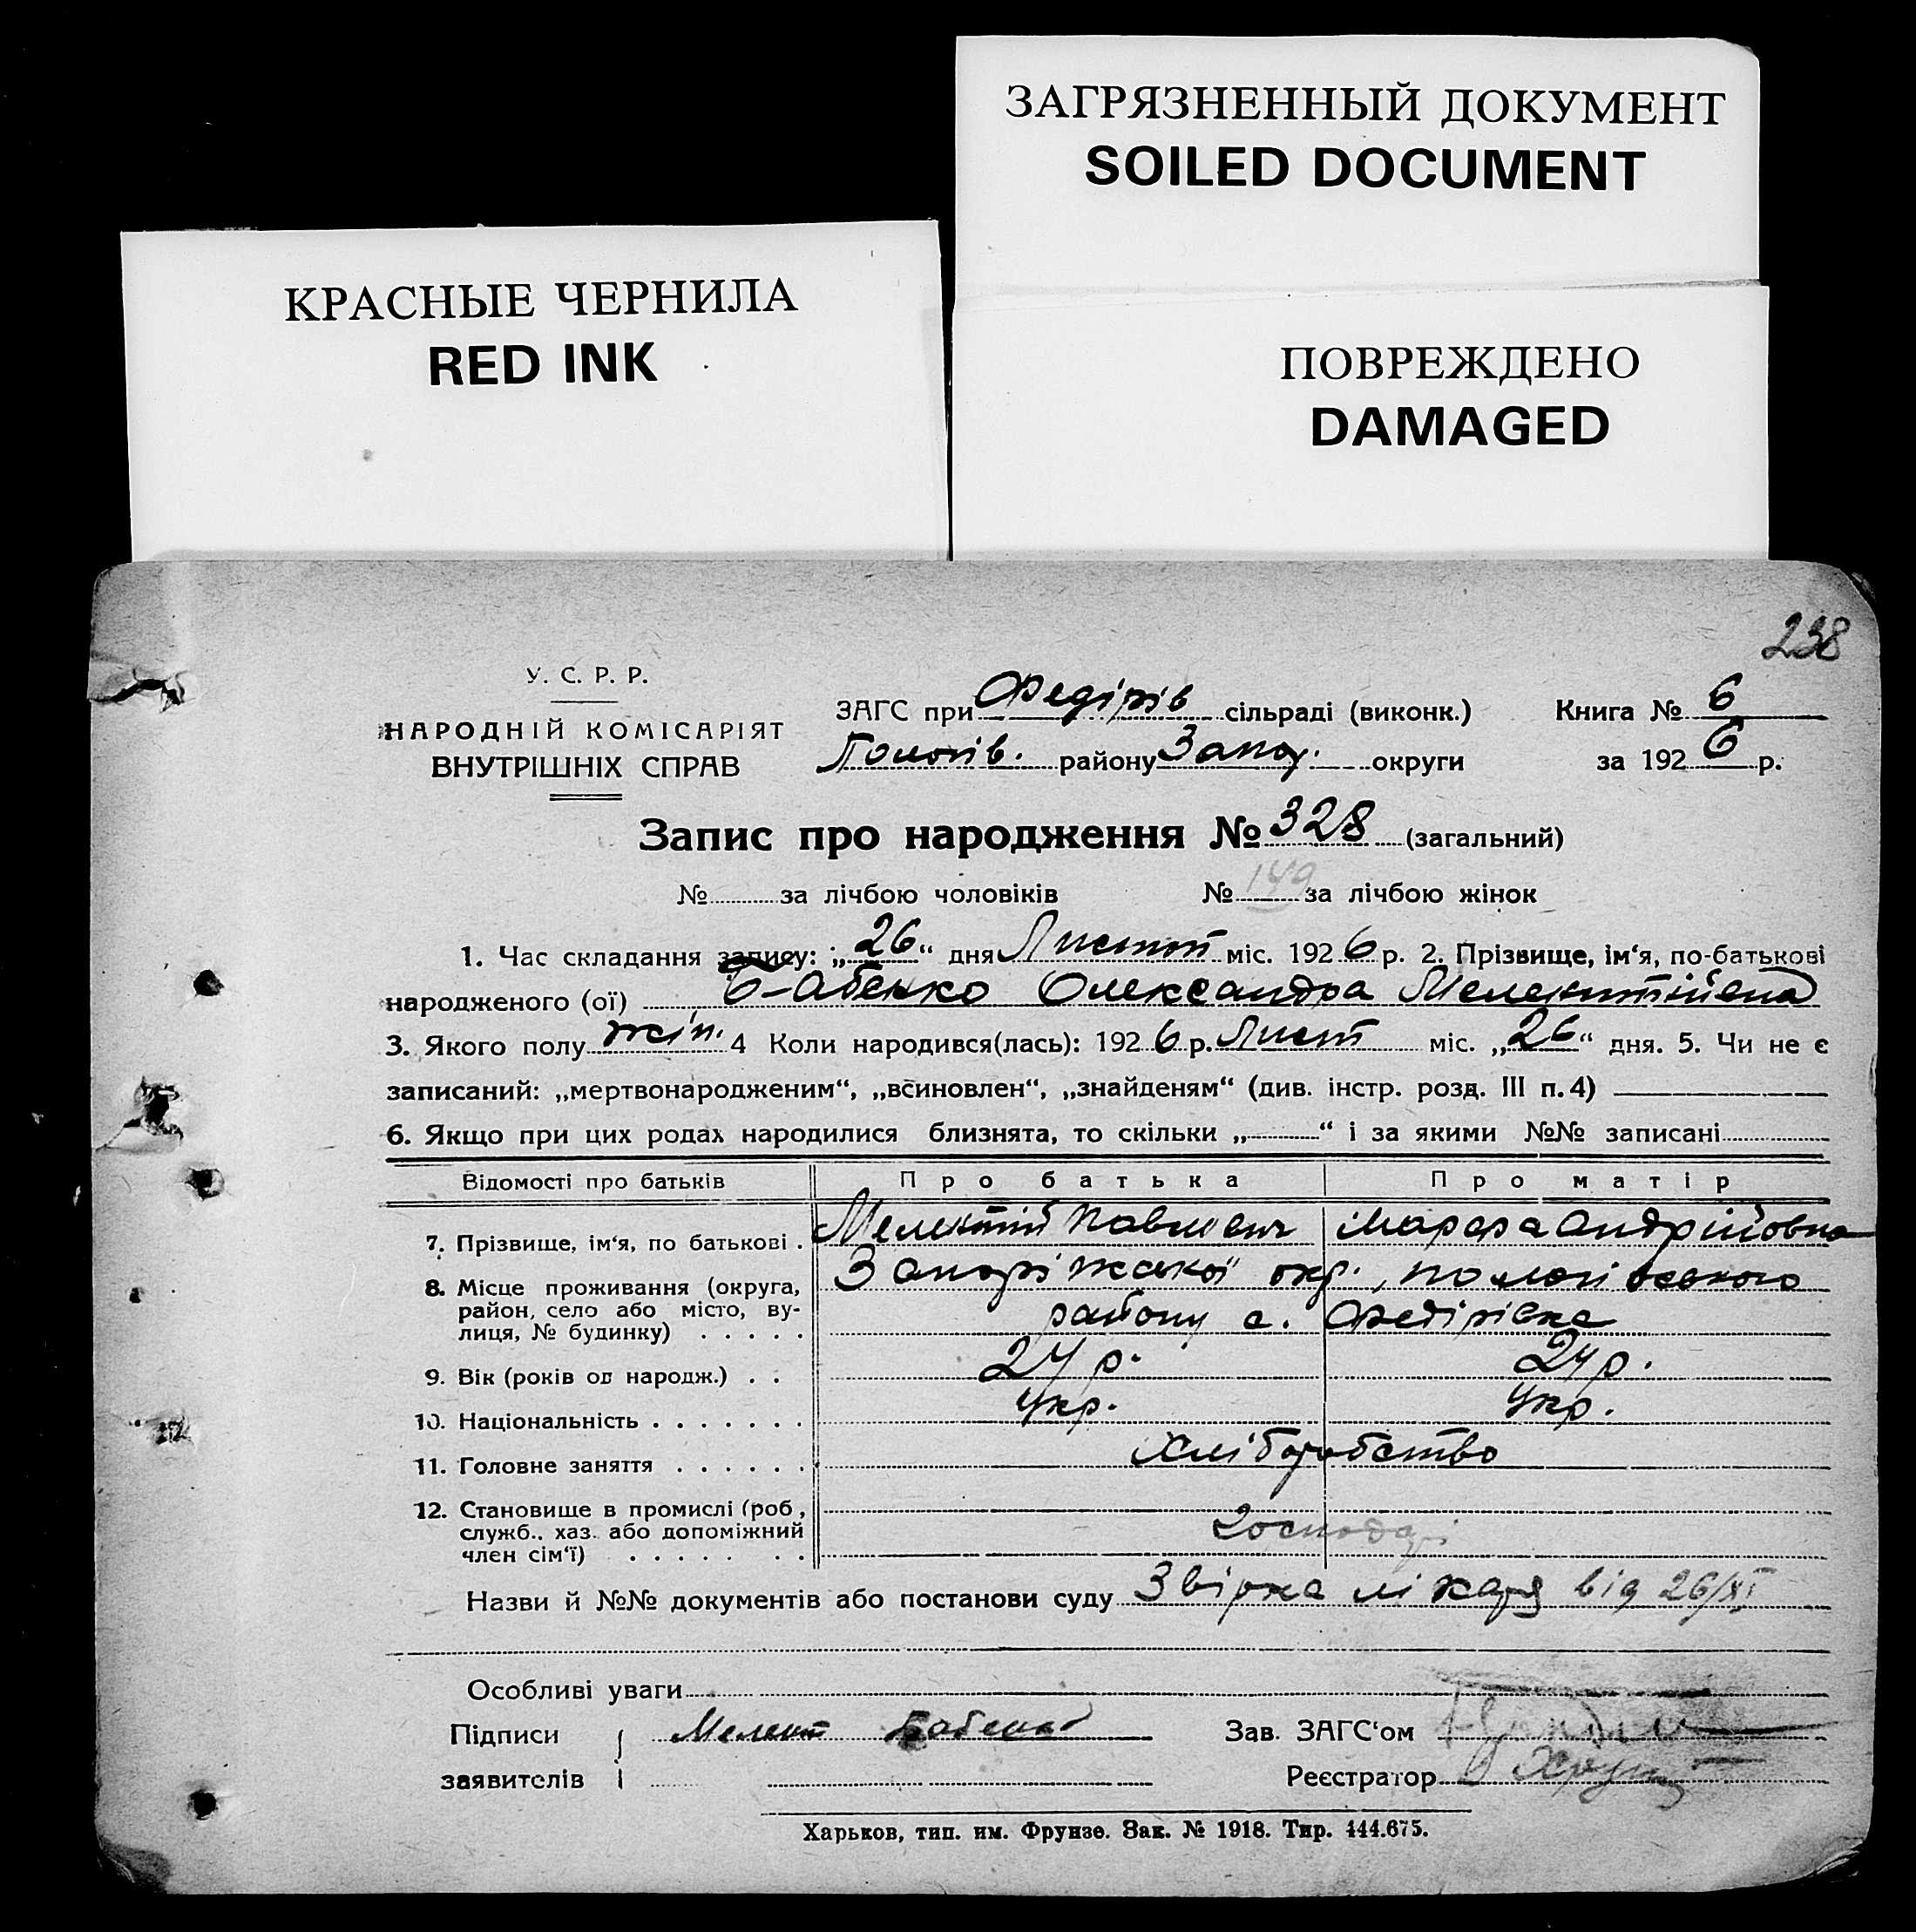 ЗАГРЯЗНЕННЫЙ ДОКУМЕНТ
SOILED DOCUMENT
КРАСНЫЕ ЧЕРНИЛА
RED INK
ПОВРЕЖДЕНО
DAMAGED
238
У. С. Р. Р.
НАРОДНІЙ КОМІСАРІЯТ
ВНУТРІШНІХ СПРАВ
ЗАГС при Федірів сільраді (виконк.) Книга № 6
Пологів. району Запор. округи за 1926 р.
Запис про народження № 328 (загальний)
№ за лічбою чоловіків № 149 за лічбою жінок
1. Час складання запису: „26“ дня Листоп міс. 1926 р. 2. Прізвище, ім‘я, по-батькові
народженого (ої) Бабенко Олександра Мелентіївна
3. Якого полу жін. 4 Коли народився(лась): 1926 р. Лист міс. „26“ дня. 5. Чи не є
записаний: „мертвонародженим“, „всиновлен“, „знайденям“ (див. інстр. розд. III п. 4)
6. Якщо при цих родах народилися близнята, то скільки „ “ і за якими №№ записані
Відомості про батьків Про батька Про матір
7. Прізвище, ім‘я, по батькові . Мелентій Павлович Марфа Андрійовна
8. Місце проживання (округа, район, село або місто, вулиця, № будинку) . . . . . Запоріжської окр., пологовського
району с. Федірівка
9. Вік (років од народж.) . . 24 р. 24 р.
10. Національність . . . . . . . Укр. Укр.
11. Головне заняття . . . . . . Хліборобство
12. Становище в промислі (роб., служб., хаз. або допоміжний член сім‘ї) Господарі
Назви й №№ документів або постанови суду Звірка лікаря від 26/XI
Особливі уваги
Підписи Мелент Бабенко Зав. ЗАГС‘ом
заявителів Реєстратор
Харьков, тип. им. Фрунзе. Зак. № 1918. Тир. 444.675.